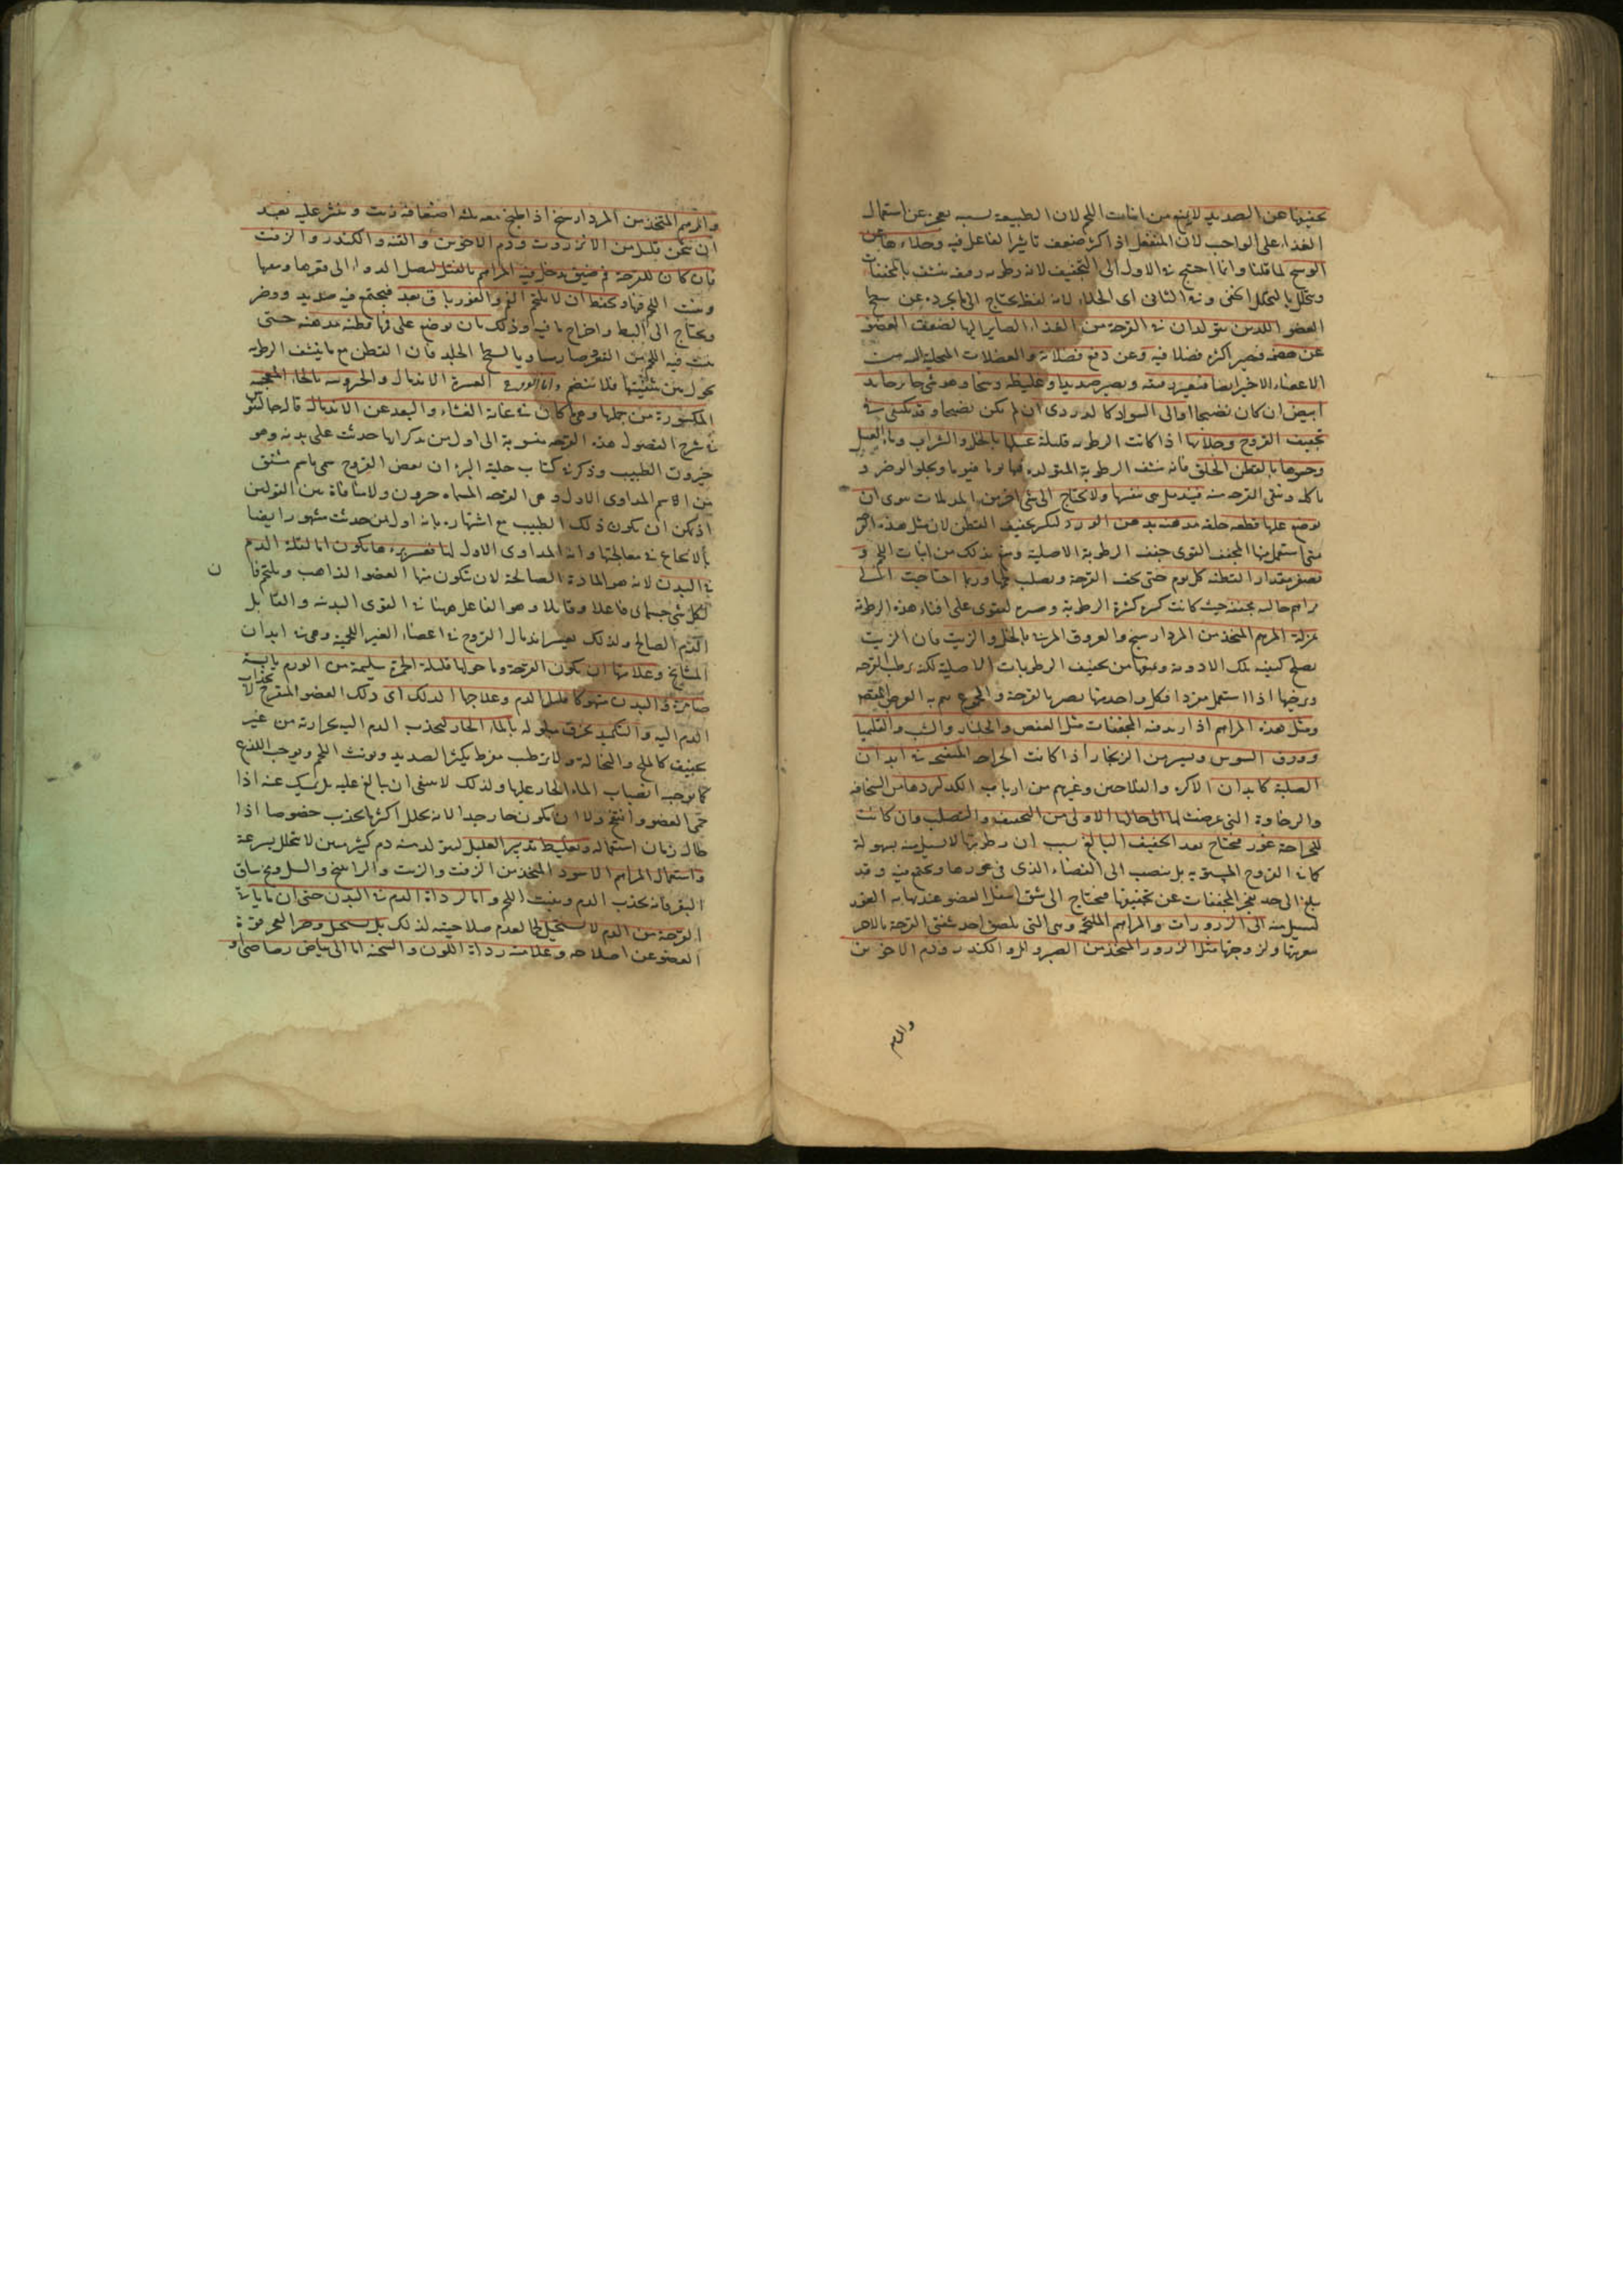 تجفيفها عن الصديد لا يمنع من انبات اللحم لان الطبيعة بسببه تعجز عن استعمال
الغذاء على الواجب لان المنفعل اذا كثر ضعف تاثير الفاعل فيه وجلاءها عن
الوسخ لما قلنا وانما احتيج في الاول الى التجفيف لانه رطوبة رقيقة تنشف بالمجففات
وتتحلل بالتحلل الخفى وفي الثانى اى الجلاء لانه لغلظه يحتاج الى ما يجرده عن سطح
العضو اللذين يتولدان في القرحة من الغذاء الصاير اليها لضعف العضو
عن هضمه فيصير اكثره فضلا فيه وعن دفع فضلاته والفضلات المتحلبة اليه من
الاعضاء الاخر ايضا فيصير رقيقه صديدا وغليظه وسخا وهو شى خاثر جامد
ابيض ان كان نضيجا او الى السواد كالدردى ان لم يكن نضيجا وقد يكتفى في
تجفيف القروح وجلائها اذا كانت الرطوبة قليلة غسلها بالخل والشراب وماء العسل
وحشوها بالقطن الخلق فانه ينشف الرطوبة المتولدة فيها يوما فيوما ويجلو الوضر
ياكله وتنقى القرحة منه فيندمل من نفسها ولا يحتاج الى شى اخر من المدملات سوى ان
يوضع عليها قطعة خلقة مدهنة بدهن الورد لتكسر تجفيف القطن لان مثل هذه القرح
متى استعمل فيها المجفف القوى جفف الرطوبة الاصلية ومنع بذلك من انبات اللحم و
تصغر مقدار القطنة كل يوم حتى تجف القرحة وتصلب لحمها وربما احتاجت الى
مراهم جالية مجففة حيث كانت كثيرة الرطوبة وضرره ليقوى على افناء هذه الرطوبة
بمنزلة المرهم المتخذ من المرداسنج والعروق المرباة بالخل والزيت فان الزيت
يصلح كيفية تلك الادوية ويمنعها من تجفيف الرطوبات الاصلية لكنه يرطب القرحة
ويرخيها اذا استعمل مفردا فكل واحد منها يضر بالقرحة والمجموع يتم به الغرض المقصود
ومثل هذه المراهم اذا زيد فيه المجففات مثل العفص والجلنار والشب والقليميا
وورق السوس ويسير من الزنجار اذا كانت الجراحة المنتفخة في ابدان
الصلبة كابدان الاكرة والفلاحين وغيرهم من ارباب الكد لردها من السخافة
والرخاوة التى عرضت لها الى حالها الاولى من التجفيف والتصلب وان كانت
للجراحة غور فيحتاج بعد التجفيف البالغ بسبب ان رطوبتها لا تسيل منه بسهولة
كما في القروح المستوية بل ينصب الى الفضاء الذى في غورها ويجتمع فيه وقد
يبلغ الى حد يعجز المجففات عن تجفيفها فيحتاج الى شق اسفل العضو عند نهاية الغور
لتسيل منه الى الذرورات والمراهم الملحمة وهى التى يلصق احد شفتى القرحة بالاخر
بغرويتها ولزوجتها مثل الذرور المتخذ من الصبر والمر والكندر ودم الاخوين
والمرهم
والمرهم المتخذ من المرداسنج اذا طبخ معه ثلثة اضعافه زيت ونثر عليه بعد
ان ثخن قليل من الانزروت ودم الاخوين والقنة والكندر والزفت
فان كان للقرحة فم ضيق يدخل فيه المراهم بالفتل ليصل الدواء الى قعرها ومعها
وينبت اللحم فيها ويحفظ ان لا يلتحم الفم والغور باق بعد فيجتمع فيه صديد ووضر
ويحتاج الى البط واخراج ما فيه وذلك بان يوضع على فمها قطنة مدهنة حتى
ينبت فيه اللحم من القعر صار مساويا لسطح الجلد فان القطن مع ما ينشف الرطوبة
يحول بين شفتيها فلا تنضم واما القروح العسرة الاندمال والخيرونية بالخاء المعجمة
المكسورة من جملها وهى كان في غاية الفشاء والبعد عن الاندمال قال جالينوس
في شرح الفصول هذه القرحة منسوبة الى اول من تذكر انها حدثت على بدنه وهو
خيرون الطبيب وذكر في كتاب حيلة البرء ان بعض القروح سمى باسم مشتق
من الاسم المداوى الاول وهى القرحة المسماة خيرون ولا منافاة بين القولين
اذ يمكن ان يكون ذلك الطبيب مع اشتهاره بانه اول من حدثت مشهورا ايضا
بالانجاع في معالجتها وانه المداوى الاول لها فعسر برءها يكون اما لقلة الدم
في البدن لانه هو المادة الصالحة لان تتكون منها العضو الذاهب ويلتحم فا
ن
لكل شى جسمانى فاعلا وقابلا وهو الفاعل ههنا في القوى البدنية والقابل
الدم الصالح ولذلك يعسر اندمال القروح في اعضاء الغير اللحمية وهى في ابدان
المشايخ وعلامتها ان يكون القرحة وما حولها قليلة الحمرة سليمة من الورم يابسة
ضامرة والبدن منهوكا قليل الدم وعلاجها الدلك اى دلك العضو المتقرح لانجذاب
الدم اليه والتكميد بخرق مبلولة بالماء الحار لتجذب الدم اليه بحرارته من غير
تجفيف كالملح والنخالة ولا ترطب مفرط يكثر الصديد ويونث اللحم ويوجب اللذع
كما يوجب انصباب الماء الحار عليها ولذلك لا ينبغى ان يبالغ عليه بل يمسك عنه اذا
حمى العضو وانتفخ ولا ان يكون حارا جدا لانه يحلل اكثر ما يجذب خصوصا اذا
طال زمان استعماله وتغليظ تدبير العليل ليتولد منه دم كثير متين لا يتحلل بسرعة
واستعمال المراهم الاسود المتخذ من الزفت والزيت والراتينج والسل ومخ ساق
البقر فانه يجذب الدم وينبت اللحم واما لرداءة الدم في البدن حتى ان ما ياتى
القرحة من الدم لا يستحيل لحما لعدم صلاحيته لذلك بل يستحيل وضرا لعجز قوة
العضو عن اصلاحه وعلامته رداءة اللون والسحنة اما الى بياض رصاصى او